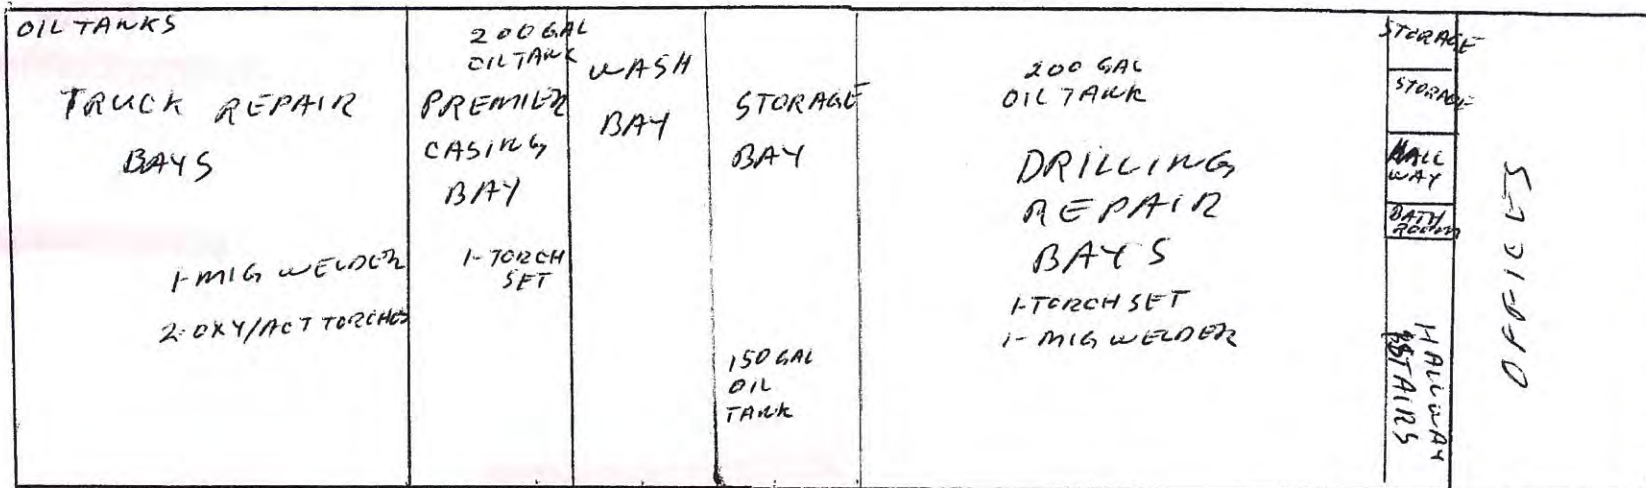 OIL TANKS
TRUCK REPAIR
BAYS
1-MIG WELDER
2-OXY/ACT TORCHES
200 GAL
OIL TANK
PREMIER
CASING
BAY
1-TORCH
SET
WASH
BAY
STORAGE
BAY
150 GAL
OIL
TANK
200 GAL
OIL TANK
DRILLING
REPAIR
BAYS
1-TORCH SET
1-MIG WELDER
STORAGE
STORAGE
HALL
WAY
BATH
ROOM
HALLWAY
STAIRS
OFFICES